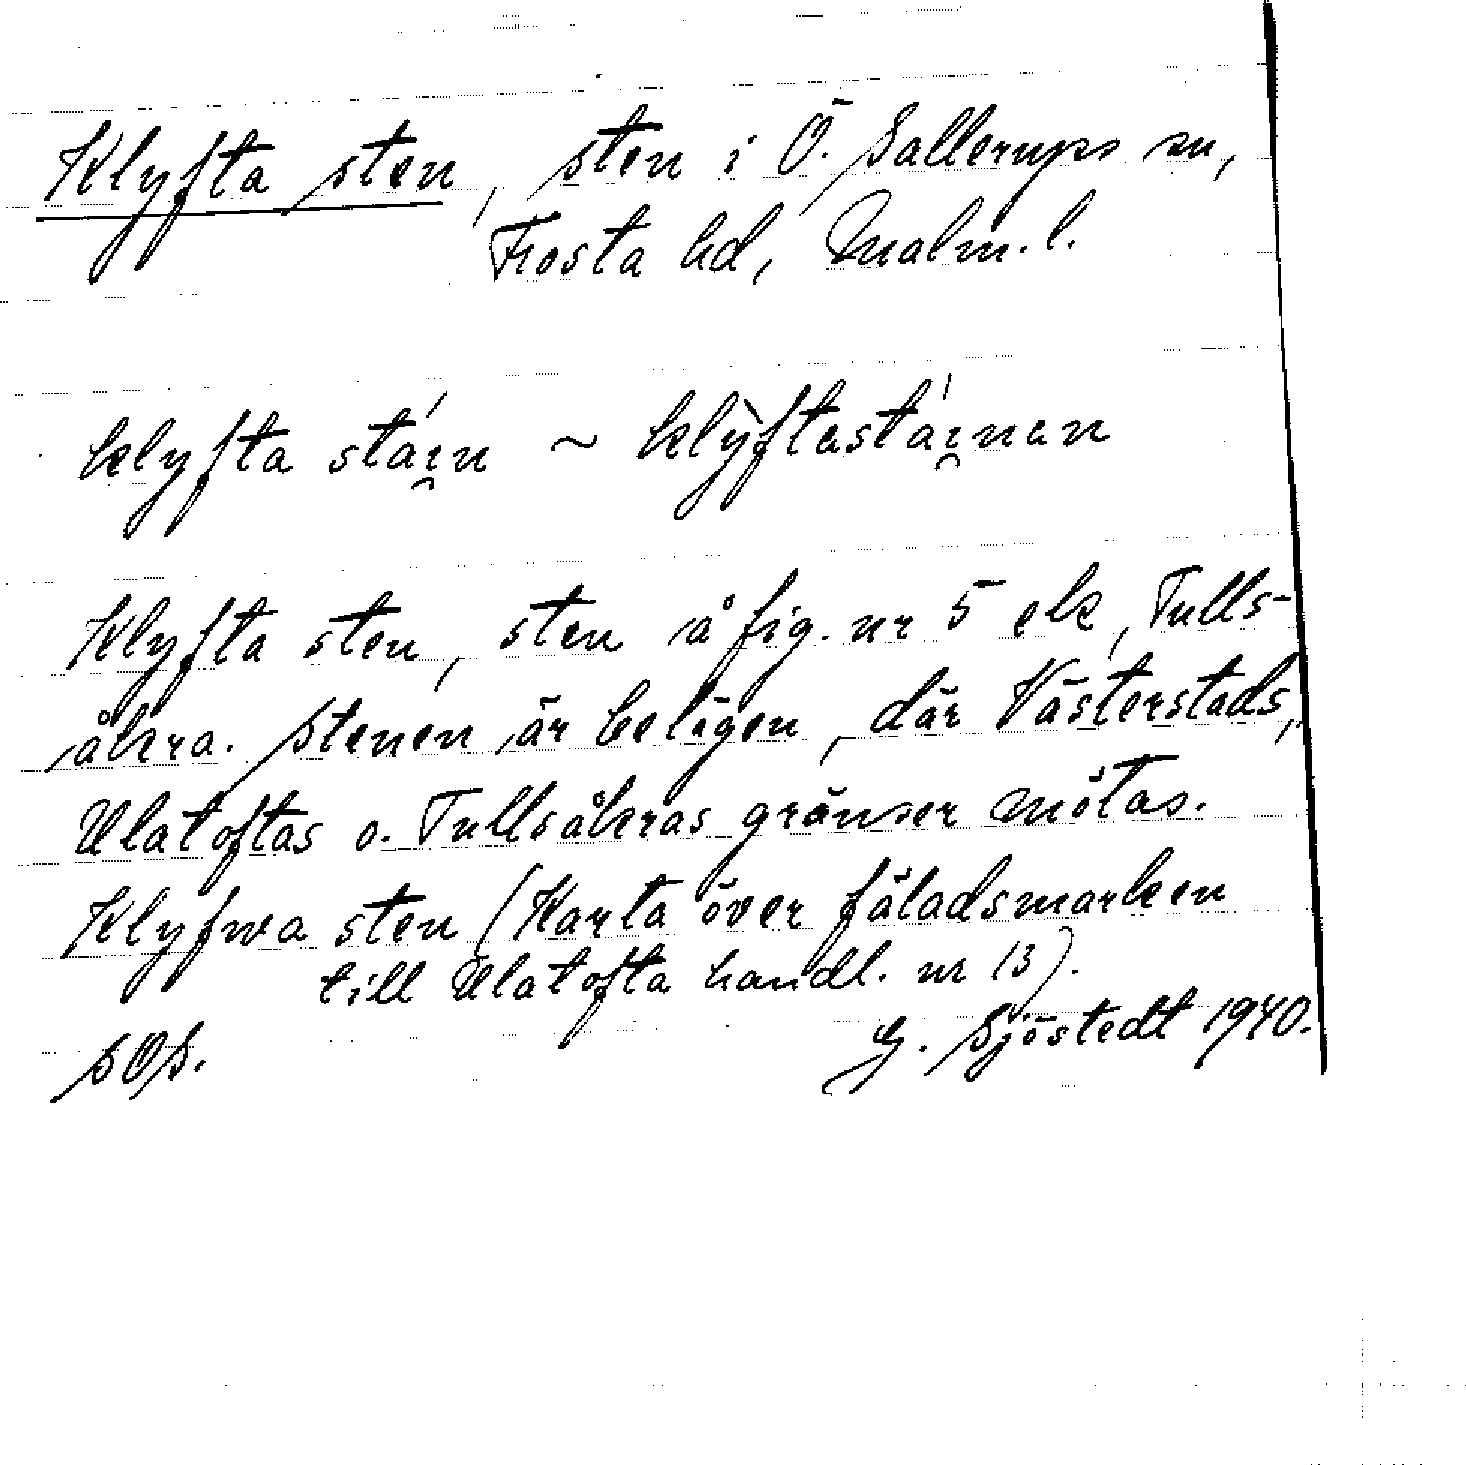 Klyfta sten, sten i Ö. Sallerups sn,
Frosta hd, Malm. l.
klyfta stáı̯n ~ klỳftastáı̯nen
Klyfta sten, sten å fig. nr 5 ek, Tulls-
åkra. Stenen är belägen, där Västerstads,
Ulatoftas o. Tullsåkras gränser mötas.
Klyfwa sten (Karta över fäladsmarken
till Ulatofta handl. nr 13).
SOS. G. Sjöstedt 1940.